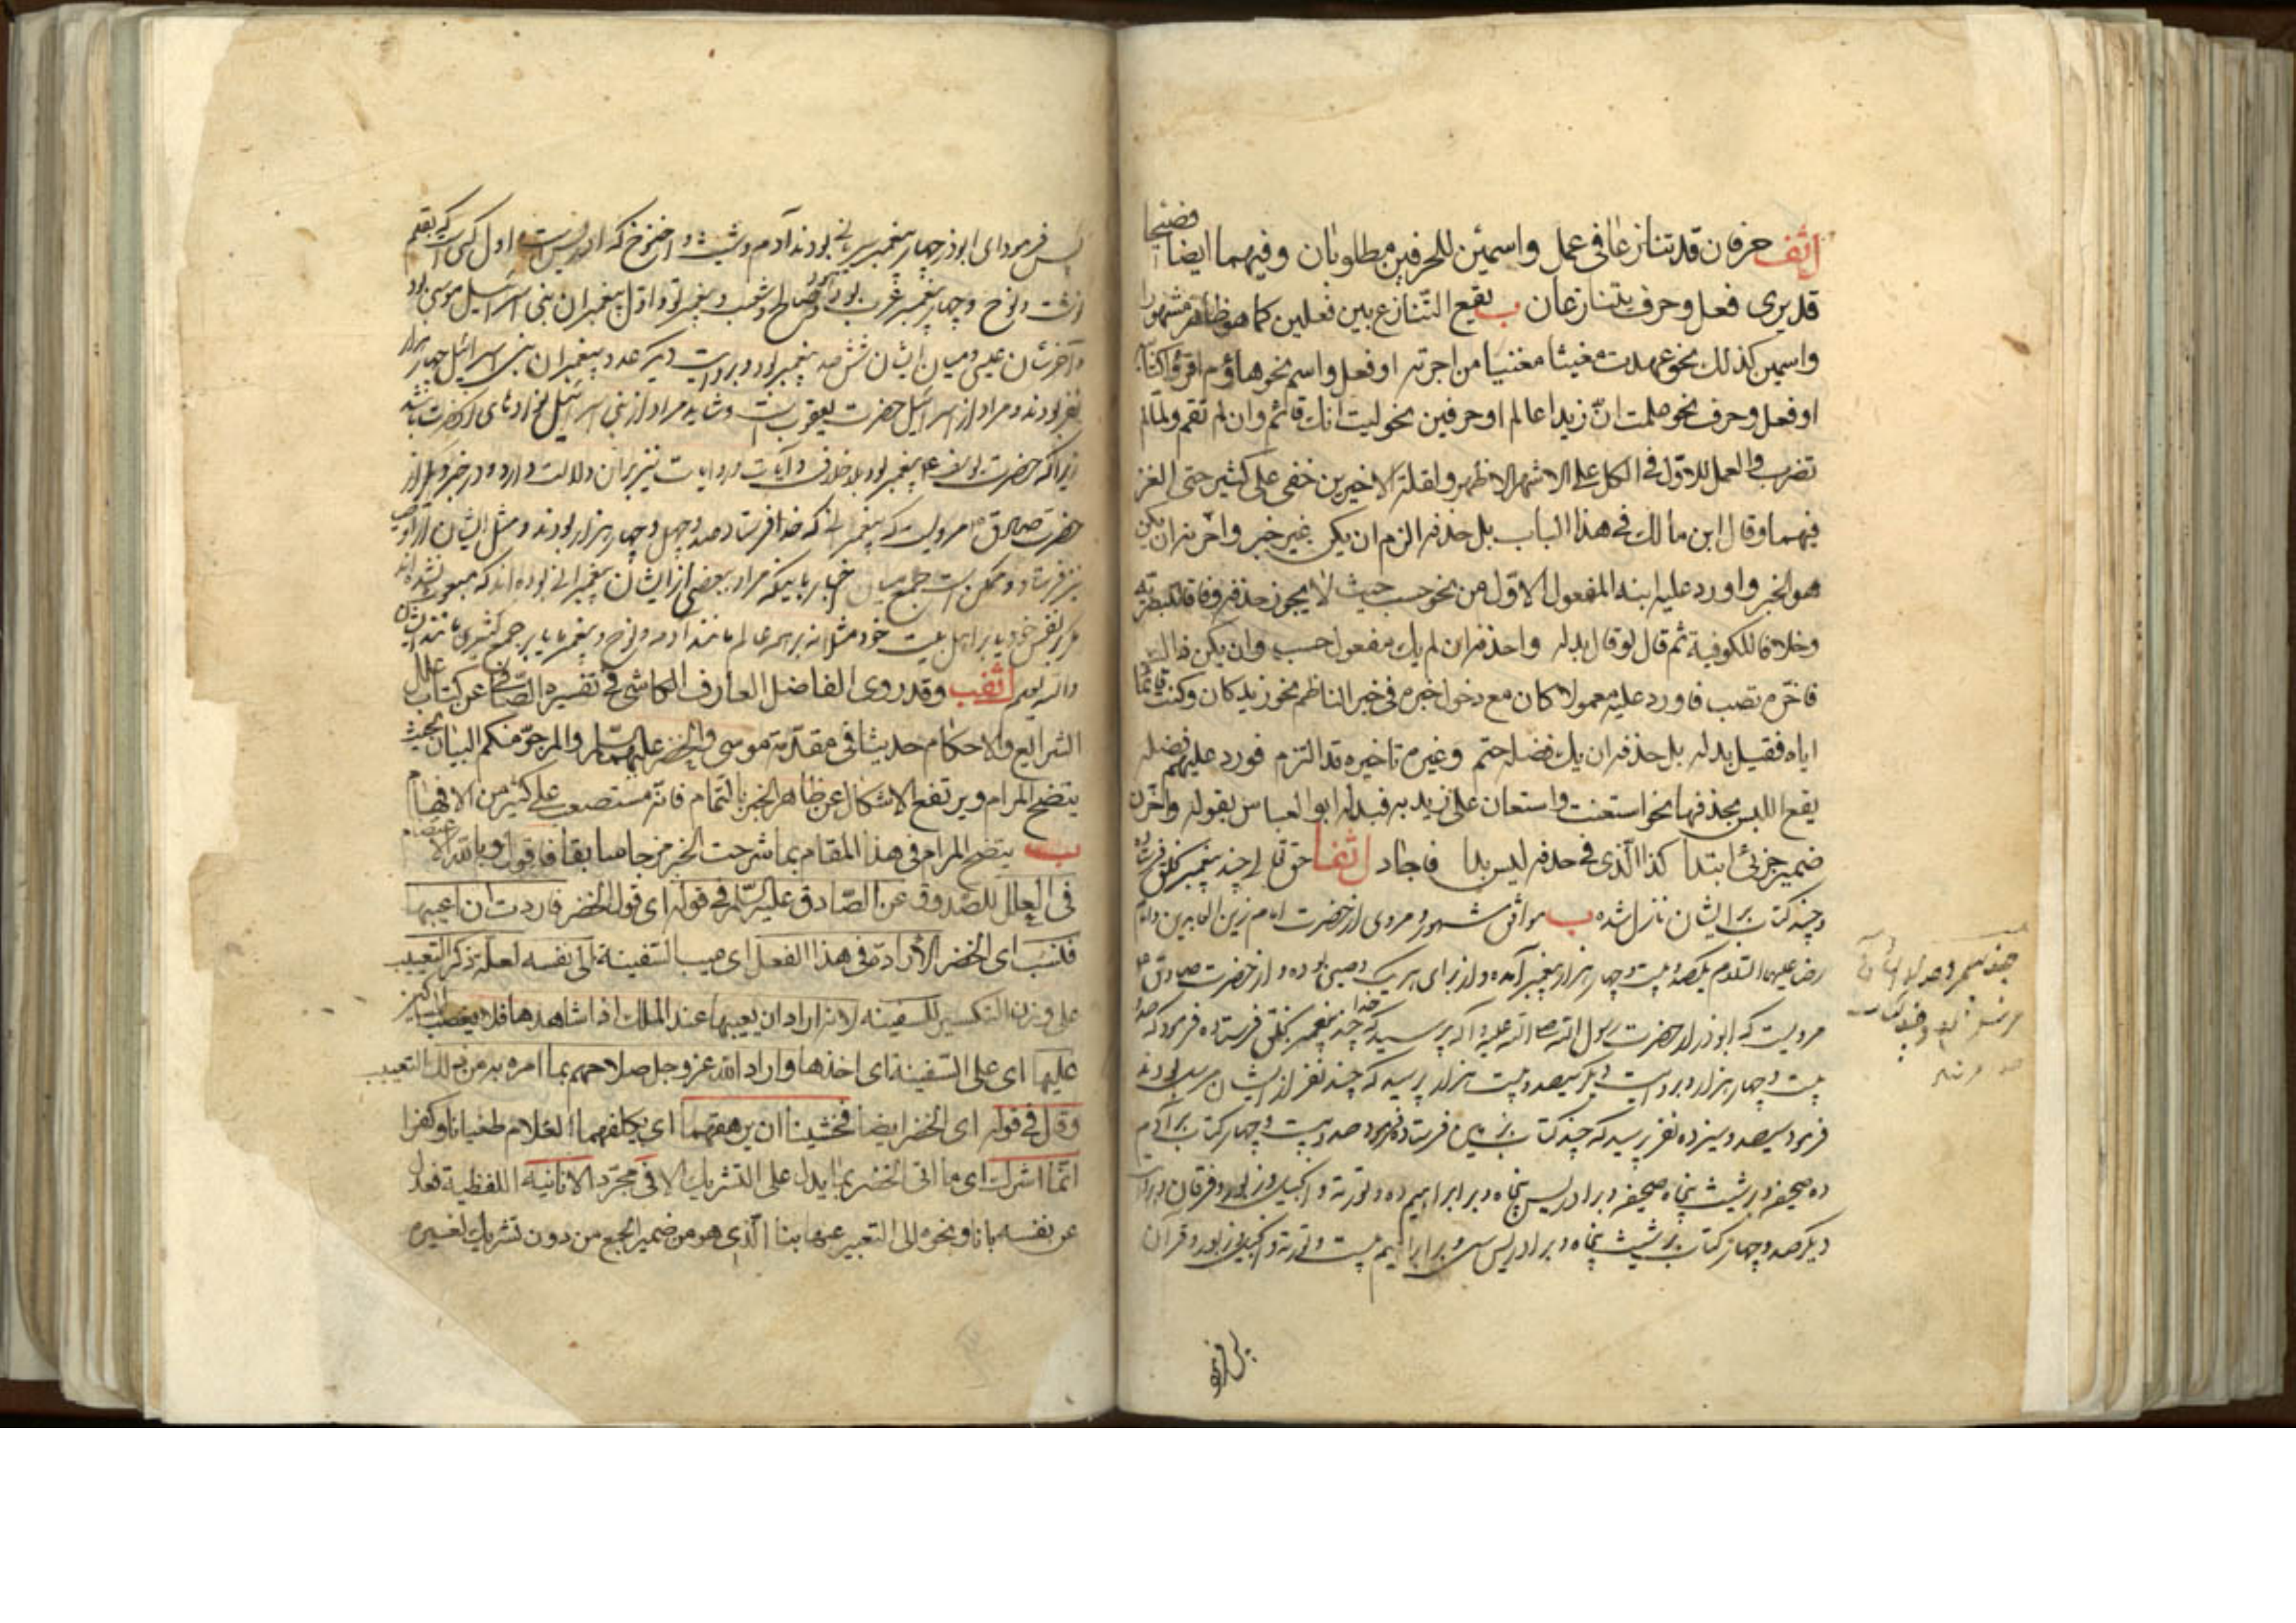 اثقف حرفان قد تنازعا في عمل واسمين للحرفين مطلوبان وفيهما ايضا فضيحا
قد يرى فعل وحرف يتنازعان ب يقع التنازع بين فعلين كما هو ظاهر مشهور
واسمين كذلك نحو عهدت مغيثا مغنيا من اجرته او فعل واسم نحو هاؤم اقرؤا كتابيه
او فعل وحرف نحو علمت ان زيدا عالم او حرفين نحو ليت انك قائم وان لم تقم ولما لم
تضرب والعمل للاول في الكل على الاشهر الاظهر ولقلة الاخيرين خفي على كثير حتى
فيهما وقال ابن مالك في هذا الباب بل حذفه الزم ان يكن غير خبر واخرنه ان يكن
هو الخبر واورد عليه ابنه المفعول الاول من نحو حسب حيث لا يجوز حذفه وفاقا للبصرية
وخلافا للكوفية ثم قال لو قال بدله واحذفه ان لم يك مفعول حسب وان يكن ذاك
فاخره تصب فاورد عليه معمولا كان مع دخول خبره في خبر الناظم نحو زيد كان وكنت قائما
اياه فقيل بدله بل حذفه ان يك فضلة حتم وغيره تاخيره قد التزم فورد عليهم فضلة
يقع اللبس بحذفها نحو استعنت واستعان علي زيد به فبدله ابو العباس بقوله واخرن
ضمير جزئي ابتدا كذا الذي في حذفه لبس بدا فاجاد اثقفا حق تعالى چند پيغمبر بخلق فرستاد
و چند كتاب بر ايشان نازل شده ب موافق مشهور و مروى از حضرت امام زين العابدين و امام
رضا عليهما السلام يكصد و بيست و چهار هزار پيغمبر آمده و از براى هر يك وصيى بوده و از حضرت صادق ع
مرويست كه ابوذر از حضرت رسول الله صلى الله عليه و آله پرسيد كه خدا چند پيغمبر بخلق فرستاده فرمود كه صد و
بيست و چهار هزار و بروايت ديگر سيصد و بيست هزار پرسيد كه چند نفر از ايشان مرسل بودند
فرمود سيصد و سيزده نفر پرسيد كه چند كتاب بزمين فرستاد فرمود صد و بيست و چهار كتاب بر آدم
ده صحيفه و بر شيث پنجاه صحيفه و بر ادريس پنجاه و بر ابراهيم ده و تورية و انجيل و زبور و فرقان و بروايت
ديگر صد و چهار كتاب بر شيث پنجاه و بر ادريس سى و بر ابراهيم بيست و تورية و انجيل و زبور و قرآن
پس فرمود
پس فرمود اى ابوذر چهار پيغمبر سريانى بودند آدم و شيث و اخنوخ كه ادريس است و اول كسى است كه بقلم
نوشت و نوح و چهار پيغمبر عرب بودند هود و صالح و شعيب و پيغمبر تو و اول پيغمبران بنى اسرائيل موسى بود
و آخرشان عيسى و ميان ايشان شش صد پيغمبر بود و بروايت ديگر عدد پيغمبران بنى اسرائيل چهار هزار
نفر بودند و مراد از اسرائيل حضرت يعقوب است و شايد مراد از بنى اسرائيل نوادهاى آنحضرت باشد
زيرا كه حضرت يوسف ع پيغمبر بود بلا خلاف و آيات و روايات نيز بر آن دلالت دارد و در خبر ديگر از
حضرت صادق ع مرويست كه پيغمبرانى كه خدا فرستاد صد و چهل و چهار هزار بودند و مثل ايشان از اوصيا
نيز فرستاد و ممكن است جمع ميان اخبار باينكه مراد ببعضى از ايشان پيغمبرانى بوده اند كه مبعوث نشده اند
مگر بر نفس خود يا بر اهل بيت خود مثلا نه بر همه عالم مانند آدم و نوح و پيغمبر ما يا بر جمع كثيرى مانند ايشان
والله يعلم اثقب وقد روى الفاضل العارف الكاشي في تفسيره الصافي عن كتاب علل
الشرايع والاحكام حديثا في مقدمة موسى والخضر عليهما السلام والمرجو منكم البيان بحيث
يتضح المرام ويرتفع الاشكال عن ظاهر الخبر بالتمام فانه مستصعب على كثير من الافهام
ب يتضح المرام في هذا المقام بما شرحت الخبر مزجا سابقا فاقول وبالله الاعتصام
في العلل للصدوق عن الصادق عليه السلام في قوله اى قول الخضر فاردت ان اعيبها
فنسب اى الخضر الارادة في هذا الفعل اى عيب السفينة الى نفسه لعلة ذكر التعييب
على وزن التكسير للسفينه لانه اراد ان يعيبها عند الملك اذا شاهدها فلا يغصب المساكين
عليها اى على السفينة اى اخذها واراد الله عز وجل صلاحهم بما امره به من ذلك التعييب
وقال في قوله اى الخضر ايضا فخشينا ان يرهقهما اى يكلفهما الغلام طغيانا وكفرا
انما اشرك اى ما اتى الخضر بما يدل على التشريك الا في مجرد الانانية اللفظية فعدل
عن نفسه بانا ونحوه الى التعبير عنها بنا الذى هو من ضمير الجمع من دون تشريك لغيره